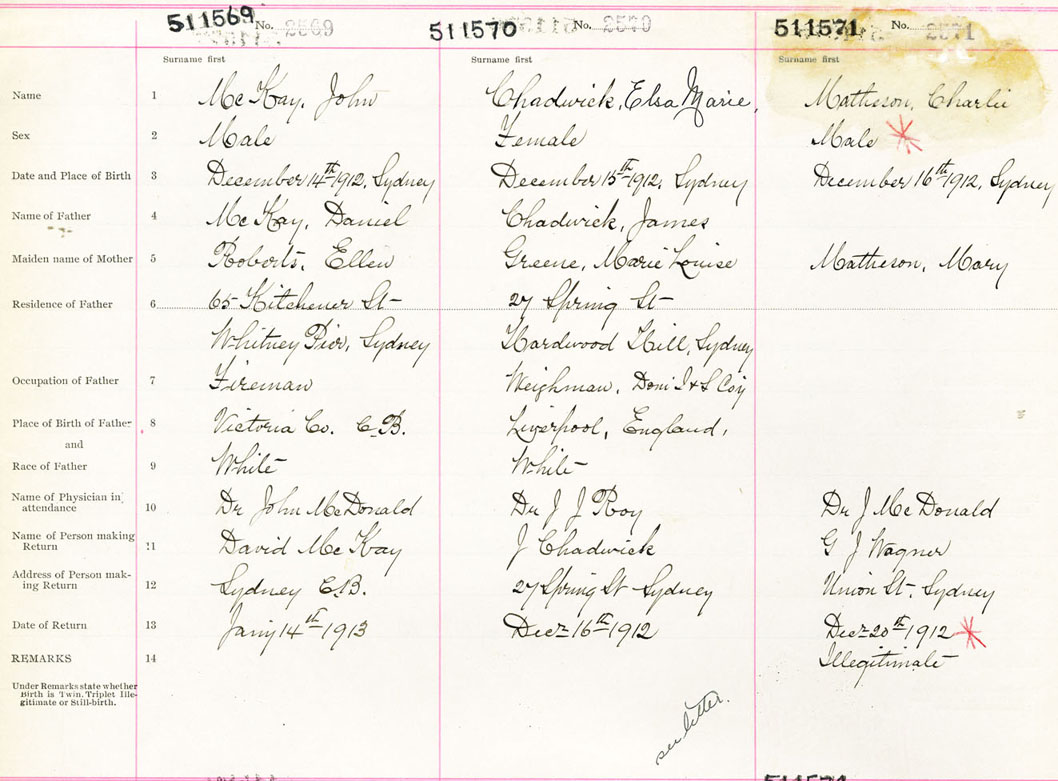 511569 No. 2569 511570 No. 2570 511571 No. 2571
Surname first Surname first Surname first
Name 1 McKay, John Chadwick, Elsa Marie, Matheson, Charlie
Sex 2 Male Female Male
Date and Place of Birth 3 December 14th 1912, Sydney December 15th 1912, Sydney December 16th 1912, Sydney
Name of Father 4 McKay, Daniel Chadwick, James
Maiden name of Mother 5 Roberts, Ellen Greene, Marie Louise Matheson, Mary
Residence of Father 6 65 Kitchener St 27 Spring St
Whitney Pier, Sydney Hardwood Hill, Sydney
Occupation of Father 7 Fireman Weighman, Dom I & S Coy
Place of Birth of Father 8 Victoria Co. C.B. Liverpool, England,
and
Race of Father 9 White White
Name of Physician in attendance 10 Dr John McDonald Dr J J Roy Dr J McDonald
Name of Person making Return 11 David McKay J Chadwick G J Wagner
Address of Person mak-
ing Return 12 Sydney C.B. 27 Spring St Sydney Union St. Sydney
Date of Return 13 Jany 14th 1913 Decr 16th 1912 Decr 20th 1912
REMARKS 14 Illegitimate
Under Remarks state whether
Birth is Twin, Triplet Ille-
gitimate or Still-birth.
see letter.